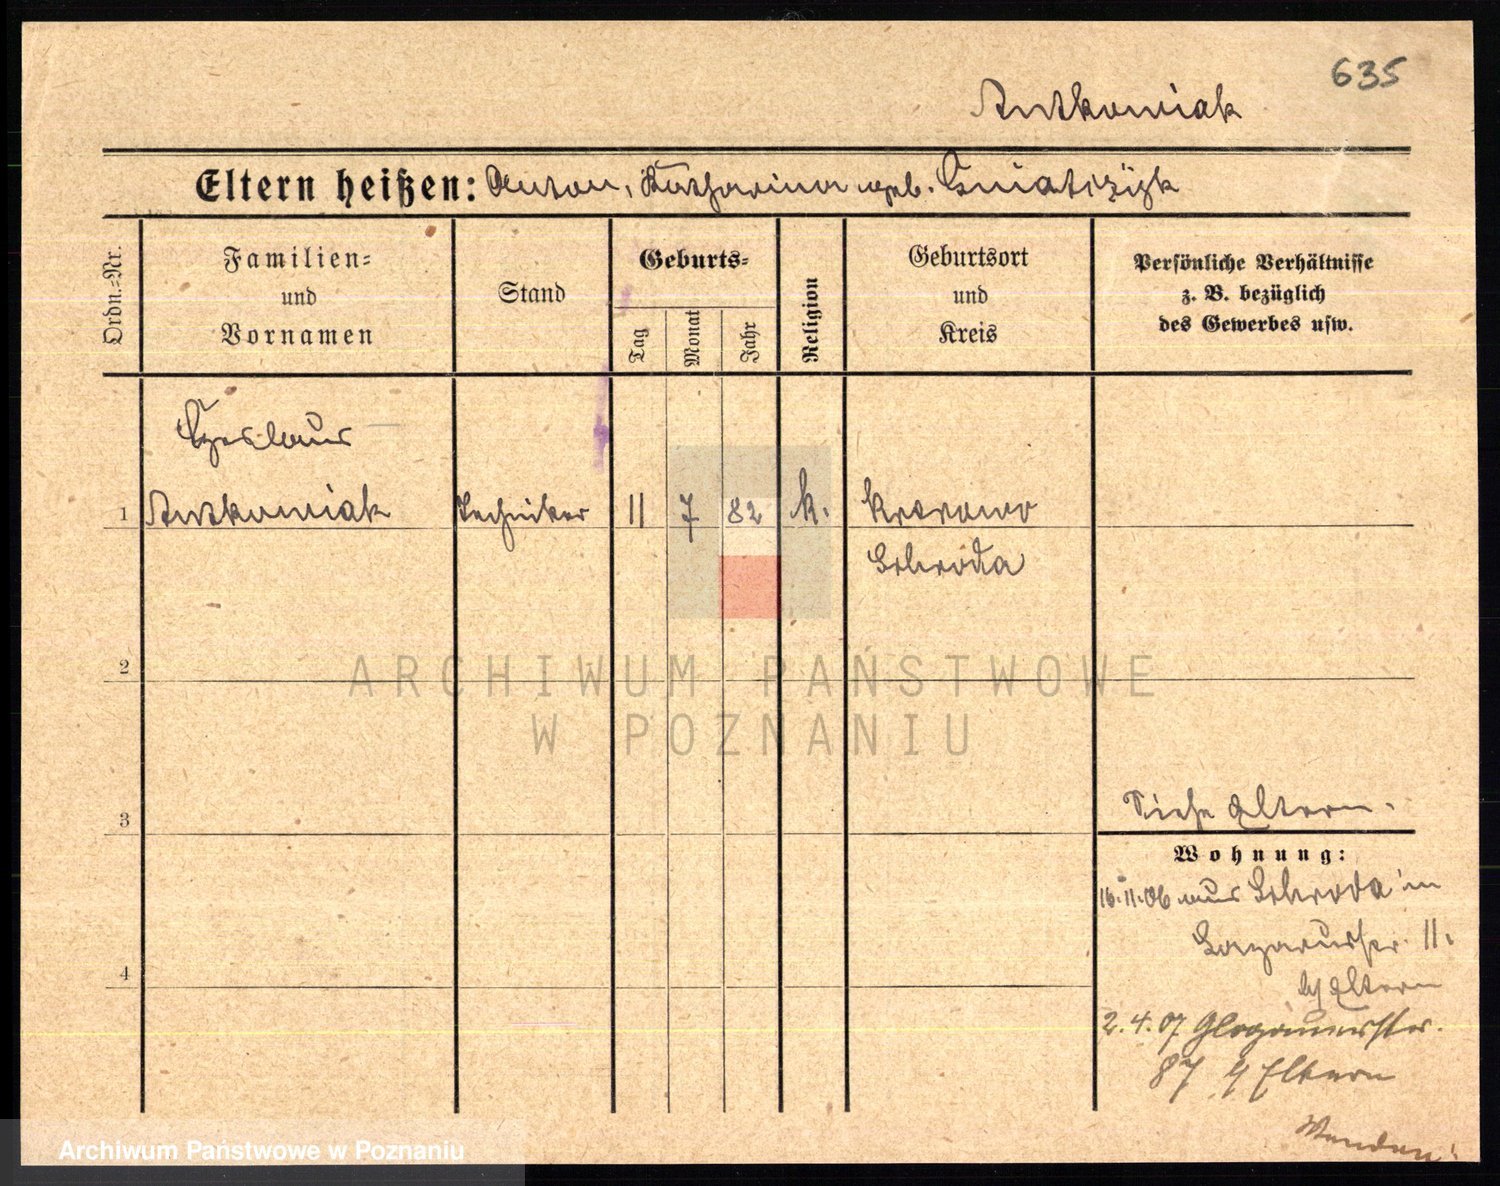 635
Antkowiak
Eltern heißen: Anton, Katharina geb.
Ordn.-Nr.
Familien-
und
Vornamen
Stand
Geburts-
Tag
Monat
Jahr
Religion
Geburtsort
und
Kreis
Persönliche Verhältnisse
z. B. bezüglich
des Gewerbes usw.
Czeslaus
1 Antkowiak Techniker 11 7 82 k.
Schroda
2
ARCHIWUM PAŃSTWOWE
W POZNANIU
3
Siehe Eltern.
Wohnung:
16.11.06 aus Schroda in
Lazarusstr. 11.
4
b/ Eltern
2.4.07 Glogauerstr.
87 b/ Eltern
Wenden!
Archiwum Państwowe w Poznaniu